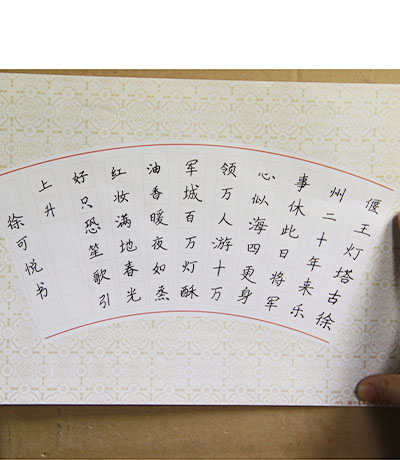 偃王灯塔古徐
州二十年来乐
事休此日将军
心似海四更身
领万人游十万
军城百万灯酥
油香暖夜如烝
红妆满地春光
好只恐笙歌引
上升
徐可悦书